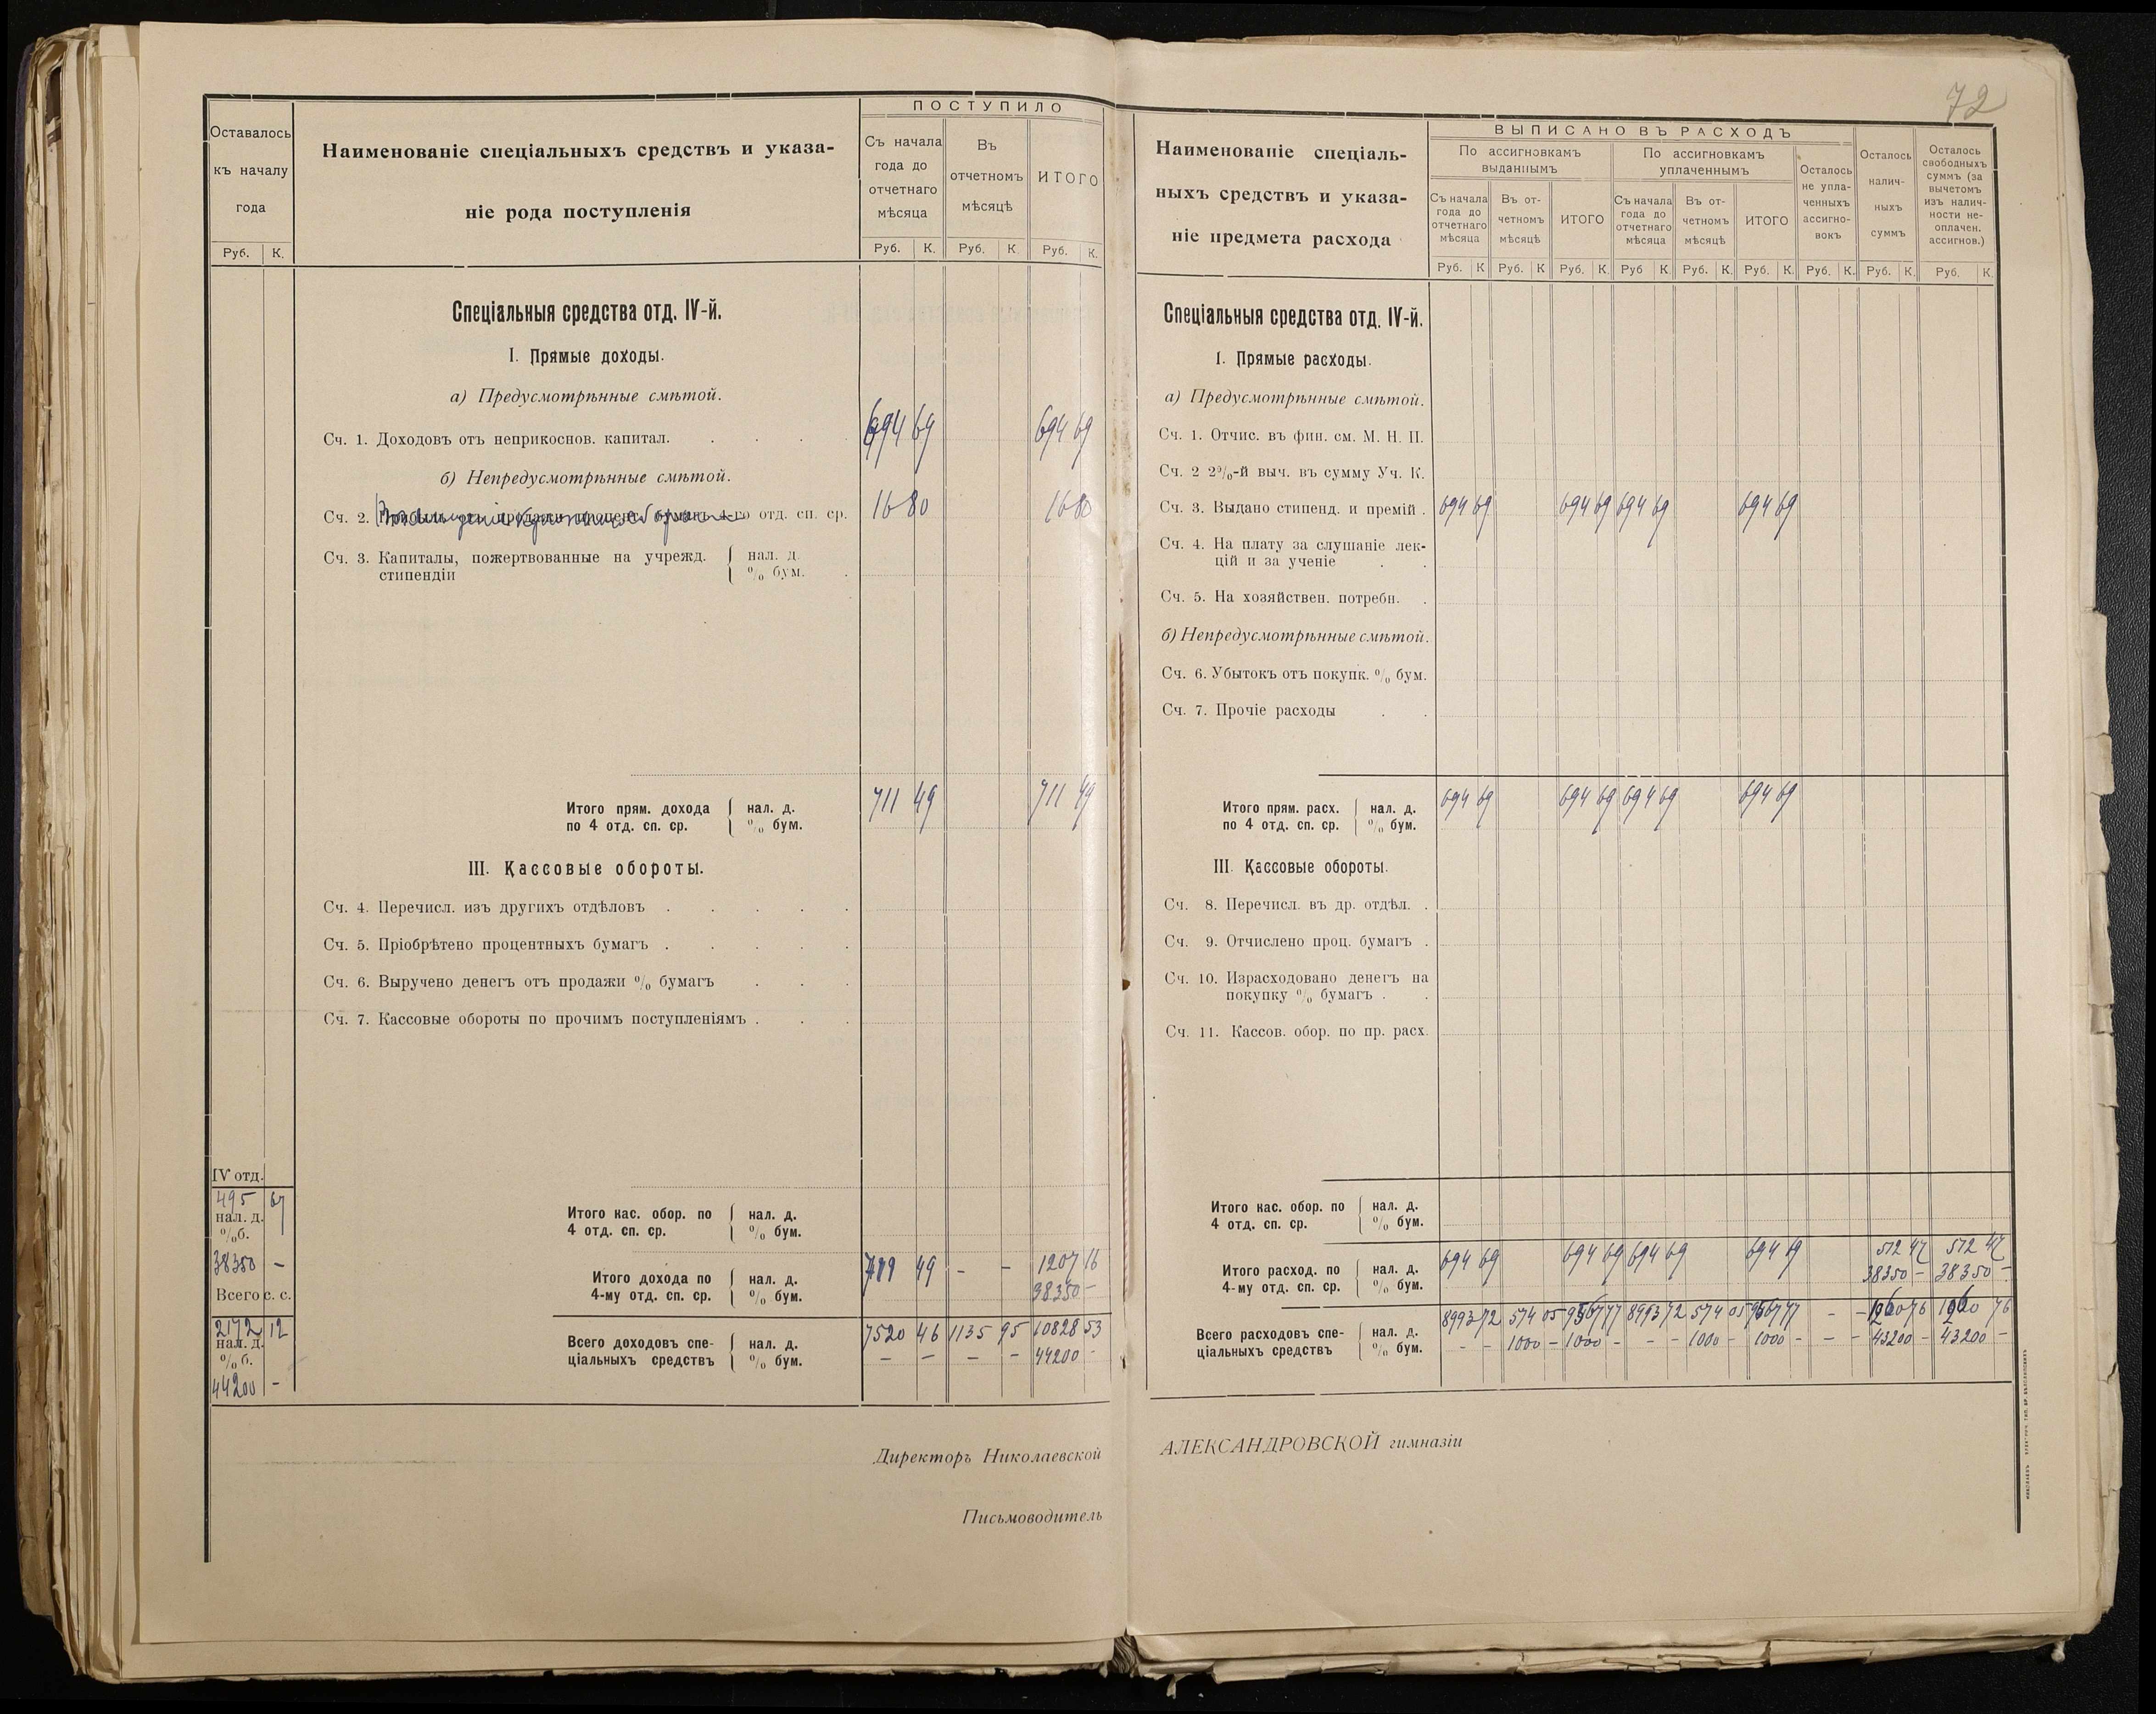 72
Оставалось
къ началу
года
Руб. К.
Наименованіе спеціальныхъ средствъ и указа-
ніе рода поступленія
ПОСТУПИЛО
Съ начала
года до
отчетнаго
мѣсяца
Въ
отчетномъ
мѣсяцѣ
ИТОГО
Руб. К. Руб. К Руб. К.
Спеціальныя средства отд. IV-й.
I. Прямые доходы.
а) Предусмотрѣнные смѣтой.
Сч. 1. Доходовъ отъ неприкоснов. капитал. 694 69 694 69
б) Непредусмотрѣнные смѣтой.
Сч. 2. 4-го отд. сп. ср. 16 80 16 80
Сч. 3. Капиталы, пожертвованные на учрежд. нал. д.
стипендіи % бум.
Итого прям. дохода нал. д. 711 49 711 49
по 4 отд. сп. ср. % бум.
III. Кассовые обороты.
Сч. 4. Перечисл. изъ другихъ отдѣловъ
Сч. 5. Пріобрѣтено процентныхъ бумагъ
Сч. 6. Выручено денегъ отъ продажи % бумагъ
Сч. 7. Кассовые обороты по прочимъ поступленіямъ
IV отд.
495 67
нал. д.
% б.
38350 -
Всего с. с.
2172 12
нал. д.
% б.
44200 -
Итого кас. обор. по нал. д.
4 отд. сп. ср. % бум.
Итого дохода по нал. д. 49 - - 1207 16
4-му отд. сп. ср. % бум. 38350 -
Всего доходовъ спе- нал. д. 7520 46 1135 95 10828 53
ціальныхъ средствъ % бум. - - - - 44200 -
Директоръ Николаевской
Письмоводитель
Наименованіе спеціаль-
ныхъ средствъ и указа-
ніе предмета расхода
ВЫПИСАНО ВЪ РАСХОДЪ
По ассигновкамъ
выданнымъ
По ассигновкамъ
уплаченнымъ
Съ начала
года до
отчетнаго
мѣсяца
Въ от-
четномъ
мѣсяцѣ
ИТОГО
Съ начала
года до
отчетнаго
мѣсяца
Въ от-
четномъ
мѣсяцѣ
ИТОГО
Осталось
не упла-
ченныхъ
ассигно-
вокъ
Осталось
налич-
ныхъ
суммъ
Осталось
свободныхъ
суммъ (за
вычетомъ
изъ налич-
ности не-
оплачен.
ассигнов.)
Руб. К Руб. К Руб. К. Руб К. Руб. К. Руб. К. Руб. К. Руб. К. Руб. К.
Спеціальныя средства отд. IV-й.
I. Прямые расходы.
а) Предусмотрѣнные смѣтой.
Сч. 1. Отчис. въ фин. см. М. Н. П.
Сч. 2 2%-й выч. въ сумму Уч. К.
Сч. 3. Выдано стипенд. и премій 694 69 694 69 694 69 694 69
Сч. 4. На плату за слушаніе лек-
цій и за ученіе
Сч. 5. На хозяйствен. потребн.
б) Непредусмотрѣнные смѣтой.
Сч. 6. Убытокъ отъ покупк. % бум.
Сч. 7. Прочіе расходы
Итого прям. расх. нал. д. 694 69 694 69 694 69 694 69
по 4 отд. сп. ср. % бум.
III. Кассовые обороты.
Сч. 8. Перечисл. въ др. отдѣл.
Сч. 9. Отчислено проц. бумагъ
Сч. 10. Израсходовано денегъ на
покупку % бумагъ
Сч. 11. Кассов. обор. по пр. расх.
Итого кас. обор. по нал. д.
4 отд. сп. ср. % бум.
Итого расход. по нал. д. 694 69 694 69 694 69 694 69 512 47 512 47
4-му отд. сп. ср. % бум. 38350 - 38350 -
Всего расходовъ спе- нал. д. 8993 72 574 05 9567 77 8993 72 574 05 9567 77 - - 1260 76 1260 76
ціальныхъ средствъ % бум. - - 1000 - 1000 - - - 1000 - 1000 - - - 43200 - 43200 -
АЛЕКСАНДРОВСКОЙ гимназіи